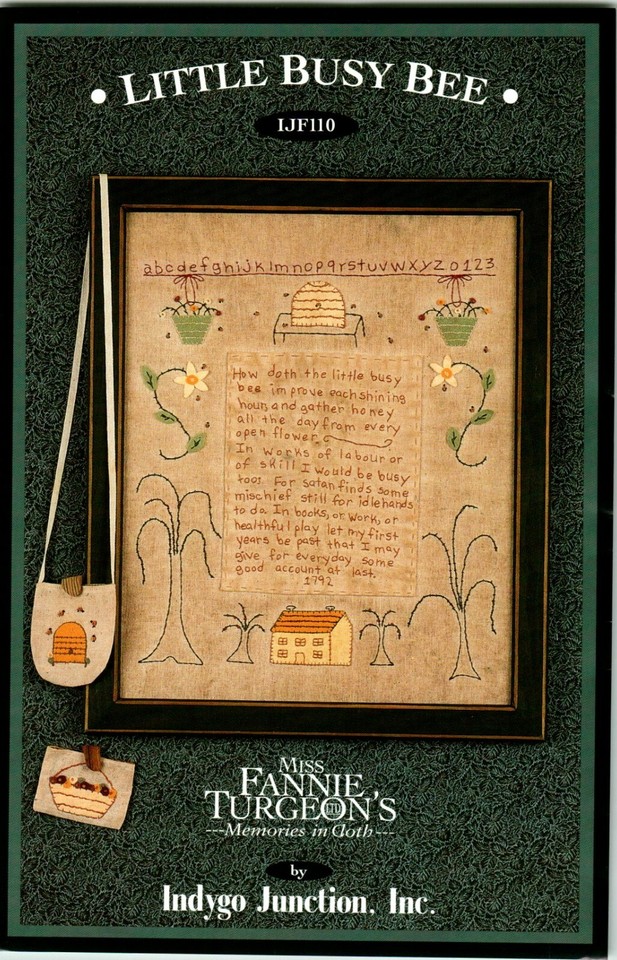 • LITTLE BUSY BEE •
IJF110
abcdefghijklmnopqrstuvwxyz0123
How doth the little busy
bee improve each shining
hour, and gather honey
all the day from every
open flower
In works of labour or
of skill I would be busy
too: For satan finds some
mischief still for idle hands
to do. In books, or work, or
healthful play let my first
years be past that I may
give for everyday some
good account at last.
1792
MISS
FANNIE
TURGEON'S
LTD
---Memories in Cloth---
by
Indygo Junction, Inc.